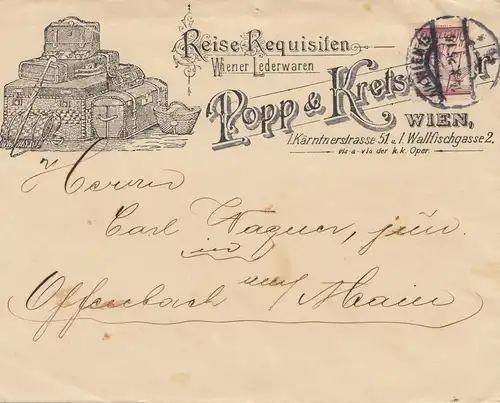 Reise-Requisiten
Wiener Lederwaren
Popp & Krets
WIEN,
I. Kärntnerstrasse 51 u. I. Wallfischgasse 2.
vis-a-vis der k.k. Oper.
Herrn
Carl Wagner, jun.
in
Offenbach am/Main